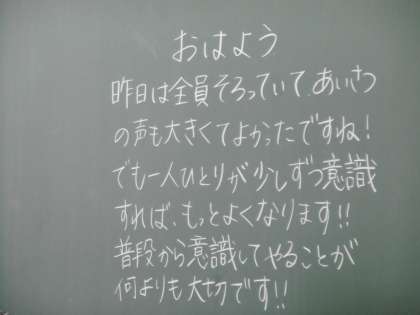 おはよう
昨日は全員そろっていて あいさつ
の声も大きくてよかったですね!
でも一人ひとりが少しずつ意識
すれば、もっとよくなります!!
普段から意識してやることが
何よりも大切です!!